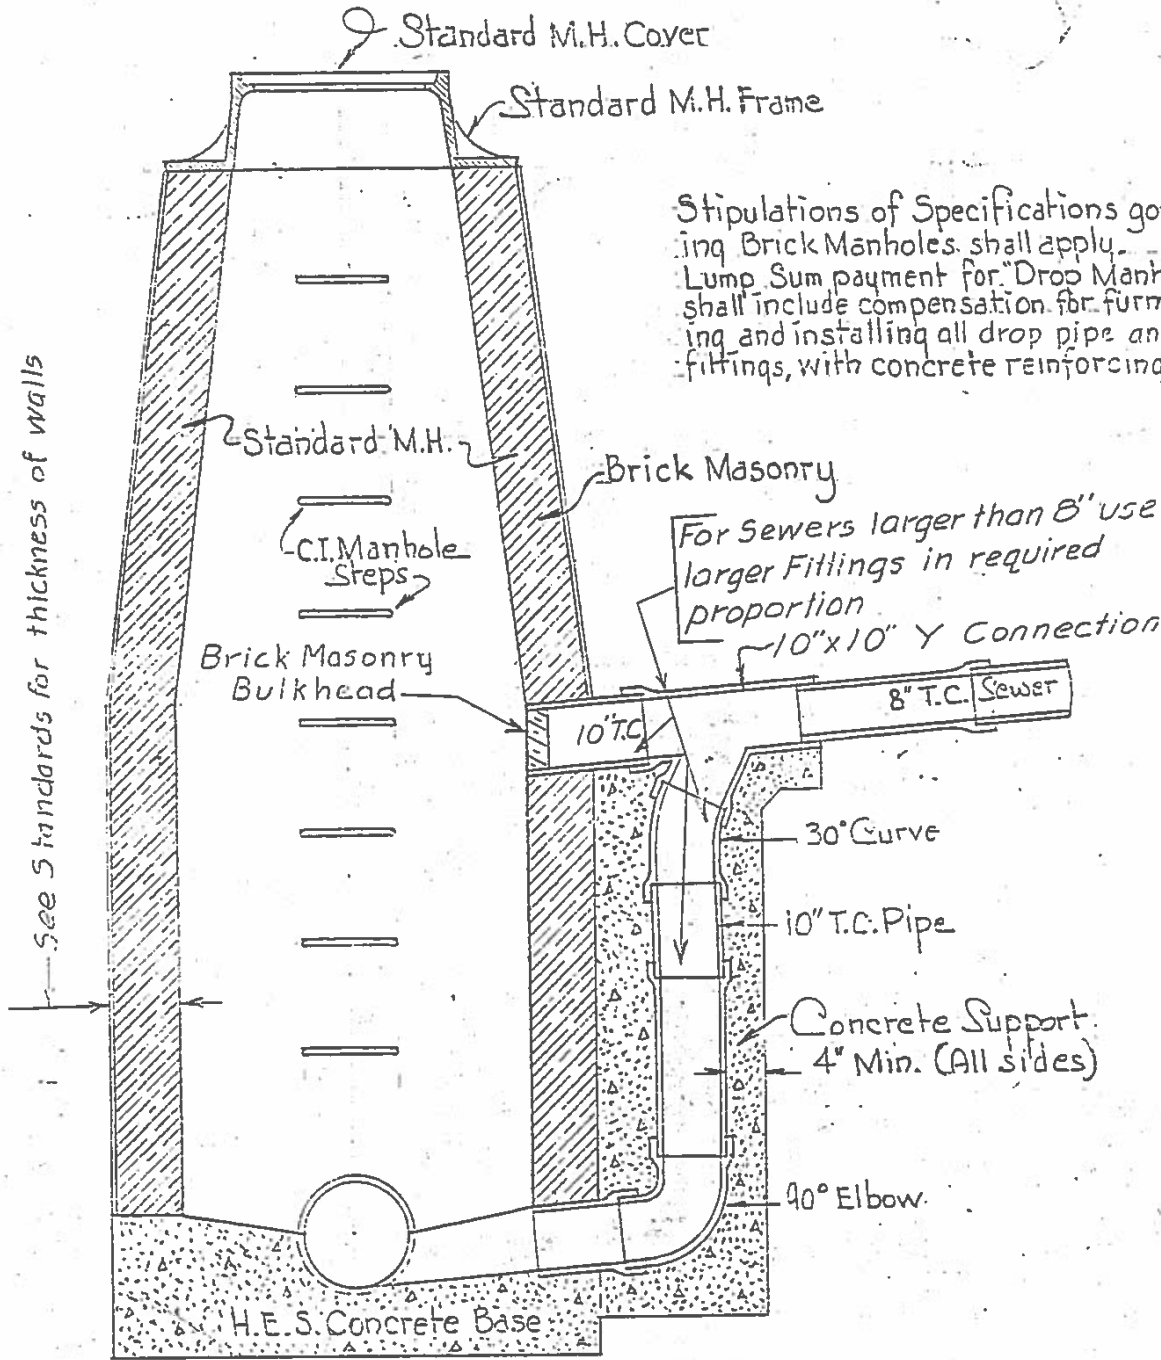 Standard M.H. Cover
Standard M.H. Frame
Stipulations of Specifications
ing Brick Manholes shall apply.
Lump Sum payment for "Drop
shall include compensation for
ing and installing all drop pipe
fittings, with concrete reinforcing
See Standards for thickness of walls
Standard M.H.
Brick Masonry
For Sewers larger than 8" use
larger Fittings in required
proportion
C.I. Manhole
Steps
10"x10" Y Connection
Brick Masonry
Bulkhead
8" T.C. Sewer
10" T.C.
30° Curve
10" T.C. Pipe
Concrete Support
4" Min. (All sides)
90° Elbow
H.E.S. Concrete Base